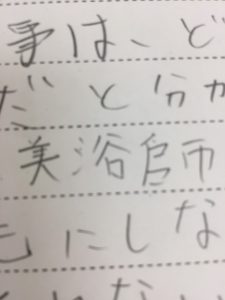 事は、ど
だと分か
美浴師
にしな